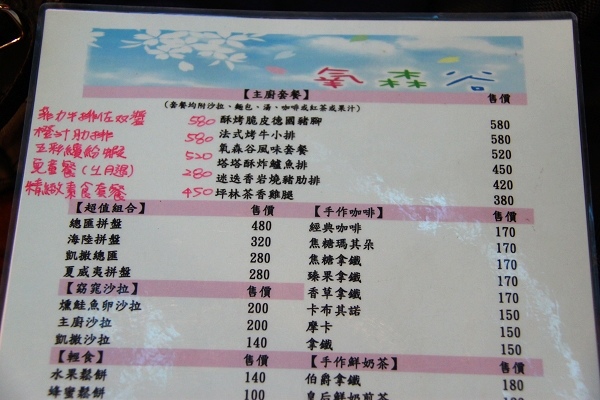 氧森谷
【主廚套餐】 售價
(套餐均附沙拉、麵包、湯、咖啡或紅茶或果汁)
菲力牛排佐双醬 580
橙汁肋排 580
五彩繽紛蝦 520
兒童餐(生日選) 280
精緻素食套餐 450
酥烤脆皮德國豬腳 580
法式烤牛小排 580
氧森谷風味套餐 520
塔塔酥炸鱸魚排 450
迷迭香岩燒豬肋排 420
坪林茶香雞腿 380
【超值組合】 售價
總匯拼盤 480
海陸拼盤 320
凱撒總匯 280
夏威夷拼盤 280
【窈窕沙拉】 售價
燻鮭魚卵沙拉 200
主廚沙拉 200
凱撒沙拉 140
【輕食】 售價
水果鬆餅 140
蜂蜜鬆餅 100
【手作咖啡】 售價
經典咖啡 170
焦糖瑪其朵 170
焦糖拿鐵 170
榛果拿鐵 170
香草拿鐵 170
卡布其諾 150
摩卡 150
拿鐵 150
【手作鮮奶茶】 售價
伯爵拿鐵 180
皇后鮮奶煎茶 180